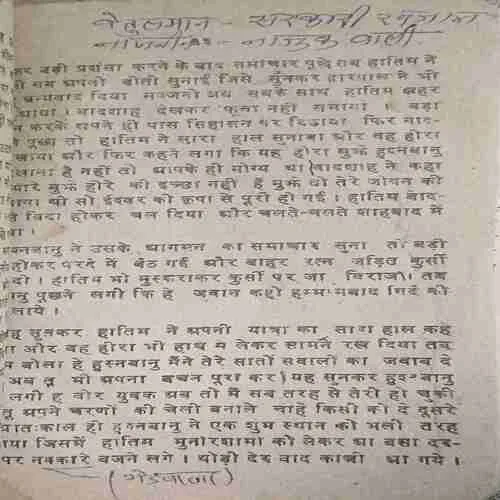 बैतुलमाल - सरकारी खजाना
नाजनीन - नाजुक वाली
कर बड़ी प्रशंसा करने के बाद समाचार पूछे सब हातिम ने
सब अपनी बीती सुनाई जिसे सुनकर हारसाम ने भी
धन्यवाद दिया सबके साथ हातिम शहर
आया। बादशाह देखकर फूला नहीं समाया। बड़ा
करके अपने ही पास सिंहासन पर बिठाया फिर बाद-
पूछा तो हातिम ने सारा हाल सुनाया और वह हीरा
और फिर कहने लगा कि यह हीरा मुझे हुस्नबानु
है नहीं तो आपके ही योग्य था बादशाह ने कहा
मुझे हीरे की इच्छा नहीं है मुझे तो तेरे जीवन की
थी सो ईश्वर की कृपा से पूरी हो गई। हातिम बाद-
से विदा होकर चल दिया और चलते-चलते शाहबाद में
हुस्नबानु ने उसके आगमन का समाचार सुना तो बड़ी
होकर परदे में बैठ गई और बाहर रत्न जड़ित कुर्सी
दी। हातिम भी मुस्कराकर कुर्सी पर जा बिराजा। तब
पूछने लगी कि हे जवान कहो हम्मामबाद गिर्द की
लाये।
यह सुनकर हातिम ने अपनी यात्रा का सारा हाल कह
और वह हीरा भी हाथ में लेकर सामने रख दिया तब
बोला हे हुस्नबानु मैंने तेरे सातों सवालों का जवाब दे
अब तू भी अपना बचन पूरा कर यह सुनकर हुस्नबानु
लगी हे वीर युवक अब तो मैं सब तरह से तेरी हो चुकी
तू अपने चरणों की चेली बनाले चाहे किसी को दे दूसरे
प्रातःकाल ही हुस्नबानु ने एक शुभ स्थान को भली तरह
जिसमें हातिम मुनीरशामी को लेकर आ बसा दर-
पर नक्कारे बजने लगे। थोड़ी देर बाद काजी आ गये।